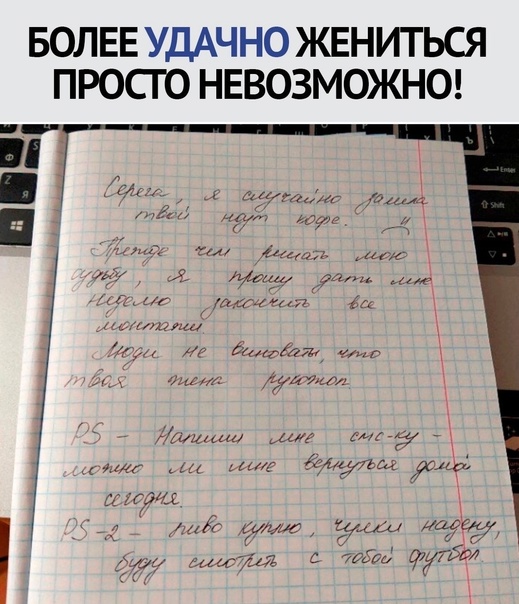 БОЛЕЕ УДАЧНО ЖЕНИТЬСЯ
ПРОСТО НЕВОЗМОЖНО!
Серега, я случайно залила
твой ноут кофе.
Прежде чем решать мою
судьбу, я прошу дать мне
неделю закончить все
монтажи
Люди не виноваты, что
твоя жена рукожоп
PS - Напиши мне смс-ку -
можно ли мне вернуться домой
сегодня.
PS-2 - пиво куплю, чулки надену,
буду смотреть с тобой футбол